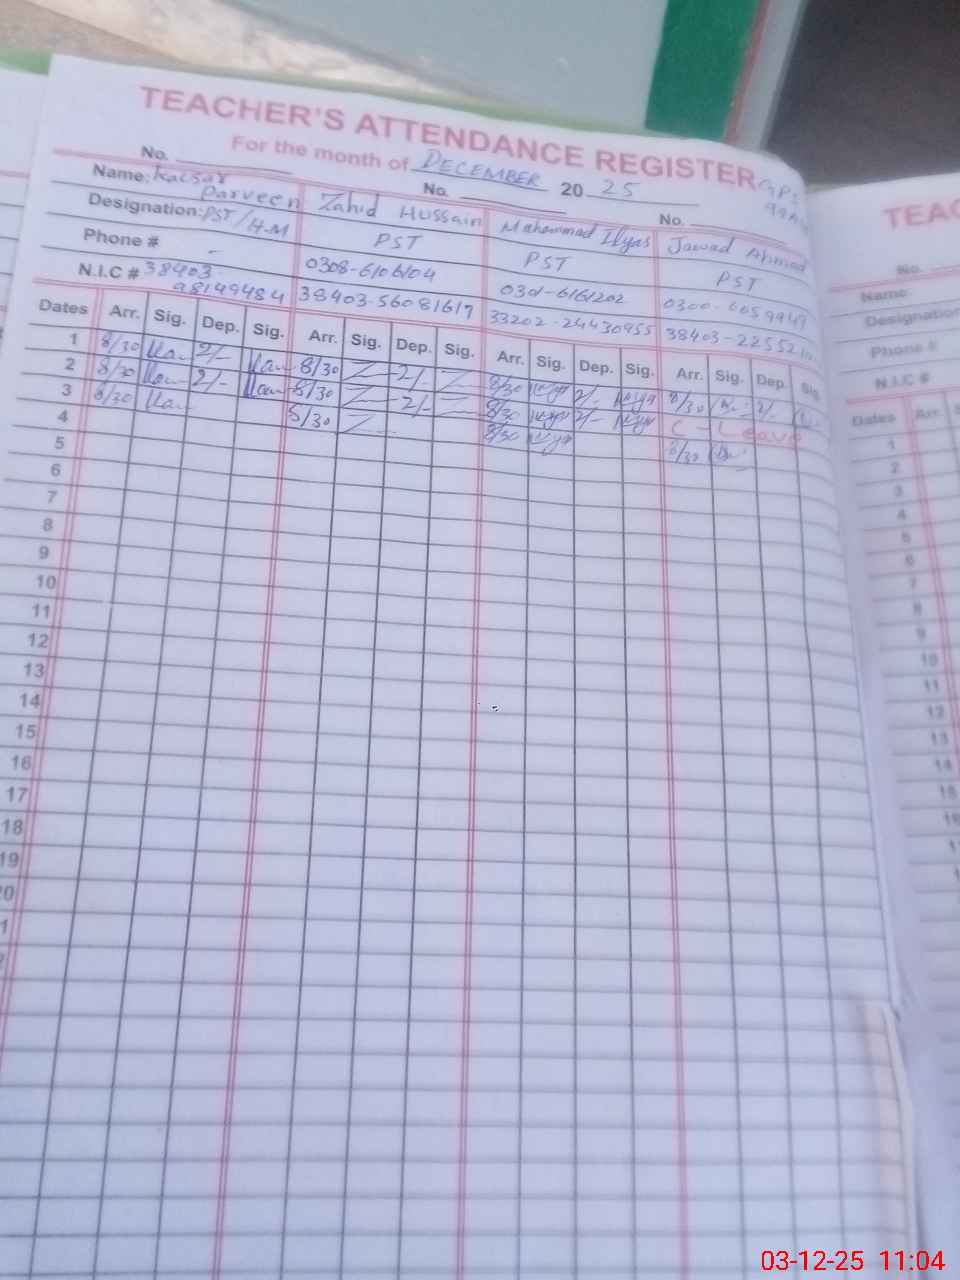 TEACHER'S ATTENDANCE REGISTER
For the month of DECEMBER 2025
No. No. No.
Name: Kaisar Parveen Zahid Hussain Mahammad Ilyas Jawad Ahmad
Designation: PST/H.M PST PST PST
Phone # - 0308-6106104 0301-6161202 0300-6059947
N.I.C # 38403- 98149484 38403-56081617 33202-24430955 38403-22552
Dates Arr. Sig. Dep. Sig. Arr. Sig. Dep. Sig. Arr. Sig. Dep. Sig. Arr. Sig. Dep. Sig
1 8/30 2/- 8/30 2/- 8/30 2/- 8/30 2/-
2 8/30 2/- 8/30 2/- 8/30 2/- C-Leave
3 8/30 8/30 8/30 8/30
4
5
6
7
8
9
10
11
12
13
14
15
16
17
18
19
20
1
TEAC
No.
Name:
Designation
Phone #
N.I.C #
Dates Arr.
1
2
3
4
5
6
7
8
9
10
11
12
13
14
15
16
03-12-25 11:04